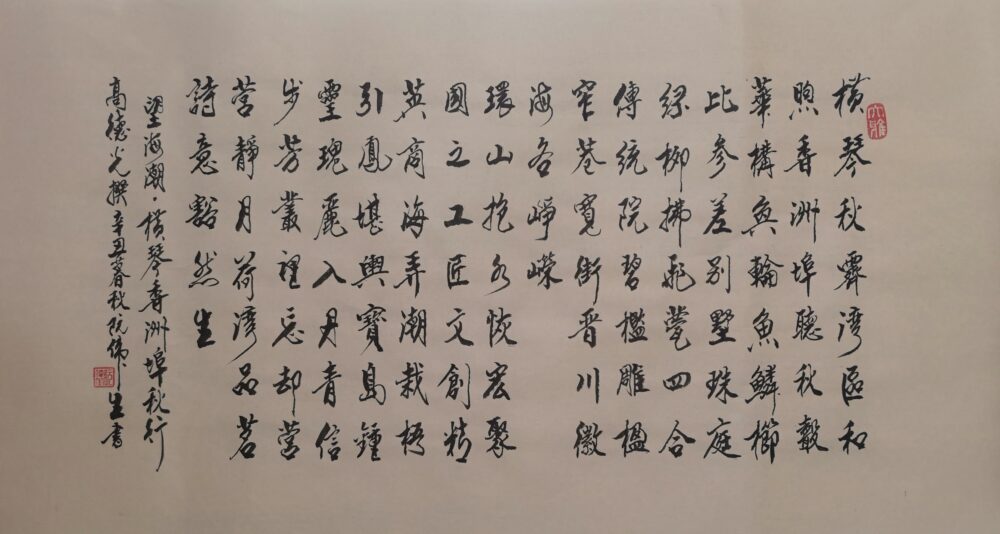 大雅
橫琴秋霽灣區和
煦香洲埠聽秋轂
華構奐輪魚鱗櫛
比參差別墅珠庭
綠柳拂飛甍四合
傳統院碧檻雕楹
窄巷寬街晉川徽
海各崢嶸
環山抱水恢宏聚
國之工匠文創精
英商海弄潮栽梧
引鳳堪輿寶島鍾
靈瑰麗入丹青信
步芳叢裡忘却營
營靜月荷灣品茗
詩意豁然生
望海潮·橫琴香洲埠秋行
高德光撰辛丑暮秋阮偉生書